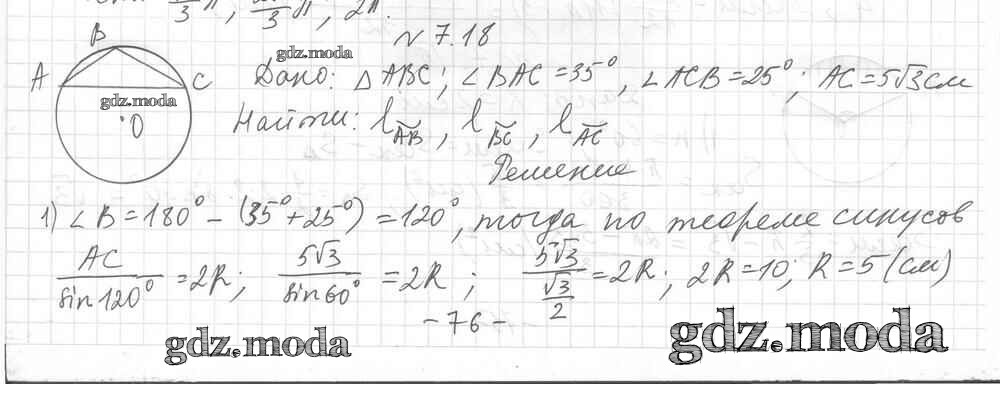 /3 π, /3 π, 2π.
№ 7.18
B
A
C
O
gdz.moda
gdz.moda
Дано: △ABC; ∠BAC = 35°, ∠ACB = 25°; AC = 5√3 см
Найти: l͝AB, l͝BC, l͝AC
Решение
1) ∠B = 180° - (35° + 25°) = 120°, тогда по теореме синусов
AC/sin120° = 2R; 5√3/sin60° = 2R; 5√3/(√3/2) = 2R; 2R = 10; R = 5 (см)
- 76 -
gdz.moda
gdz.moda